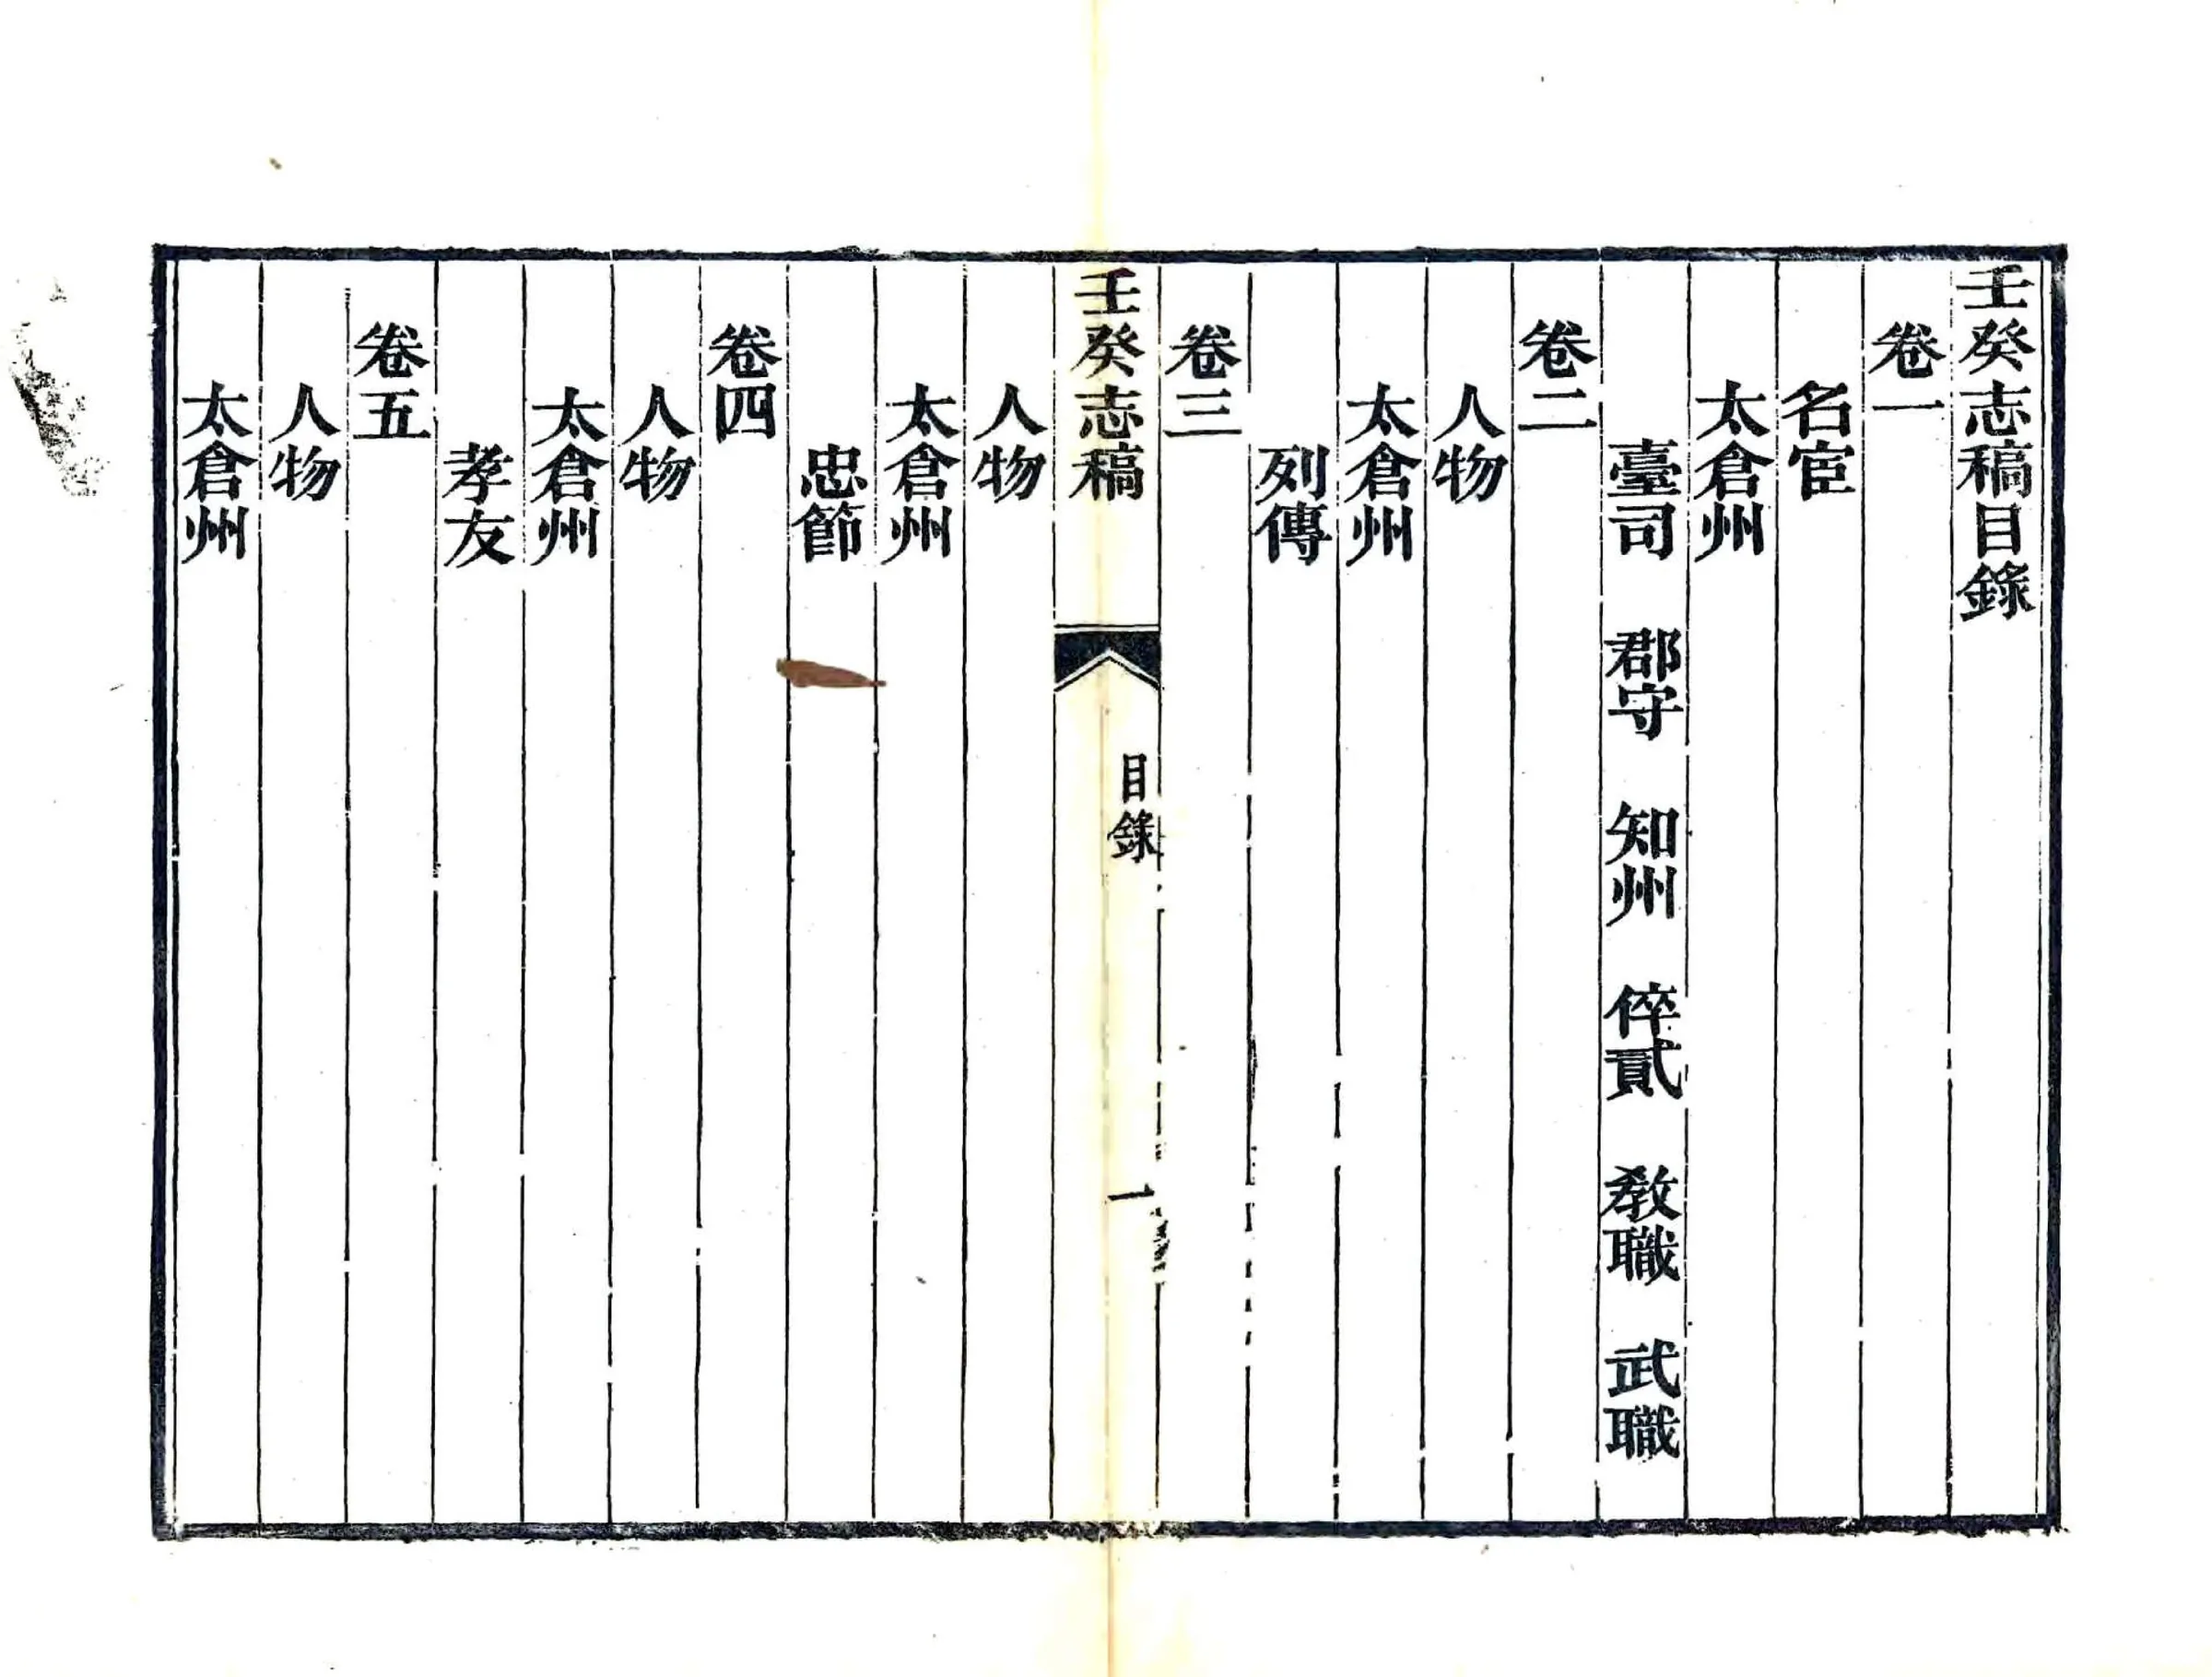 壬癸志稿目錄
卷一
名宦
太倉州
臺司　郡守　知州　倅貳　敎職　武職
卷二
人物
太倉州
列傳
卷三
壬癸志稿　目錄　一
人物
太倉州
忠節
卷四
人物
太倉州
孝友
卷五
人物
太倉州